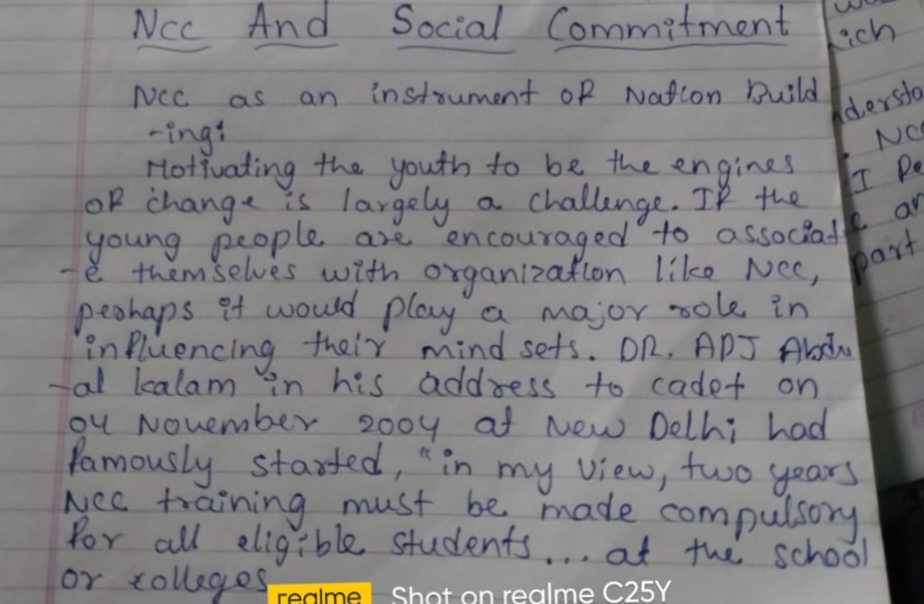 Ncc And Social Commitment
Ncc as an instrument of Nation Build
-ing:
Motivating the youth to be the engines
of change is largely a challenge. If the
young people are encouraged to associat
-e themselves with organization like Ncc,
perhaps it would play a major role in
influencing their mind sets. DR. APJ Abdu
-al kalam in his address to cadet on
04 November 2004 at New Delhi had
famously started, "in my view, two years
Ncc training must be made compulsory
for all eligible students... at the school
or colleges
ich
dersto
NC
I
an
part
realme Shot on realme C25Y